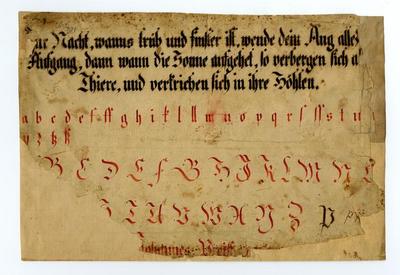 zur Nacht, wanns trüb und finster ist, wende dein Aug alles
Aufgang, dann wann die Sonne aufgehet, so verbergen sich a
Thiere, und verkriechen sich in ihre Höhlen.
a b c d e f ff g h i k l ll m n o p q r ſ ſſ s t u
y z tz
B C D E F G H J K L M N
T U V W X Y Z P
Johannes